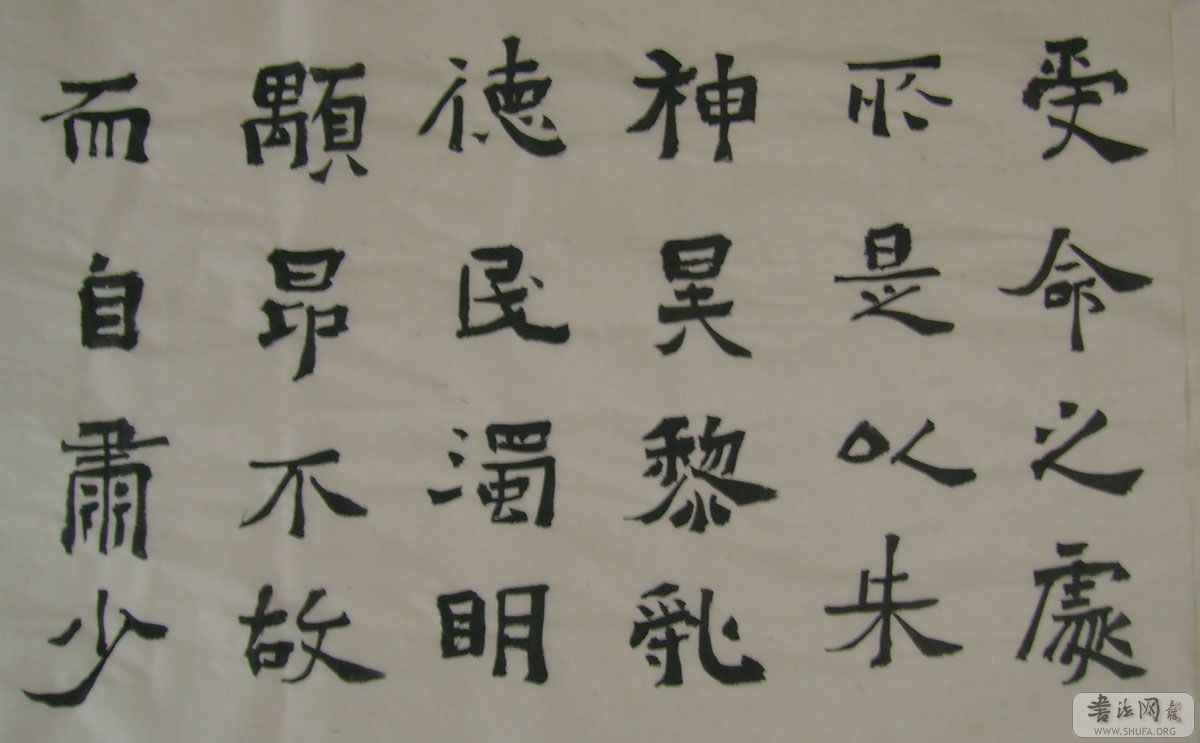 受命之處
所是以朱
神異黎亂
德民濁明
顒昂不故
而自肅少
书法网
WWW.SHUFA.ORG